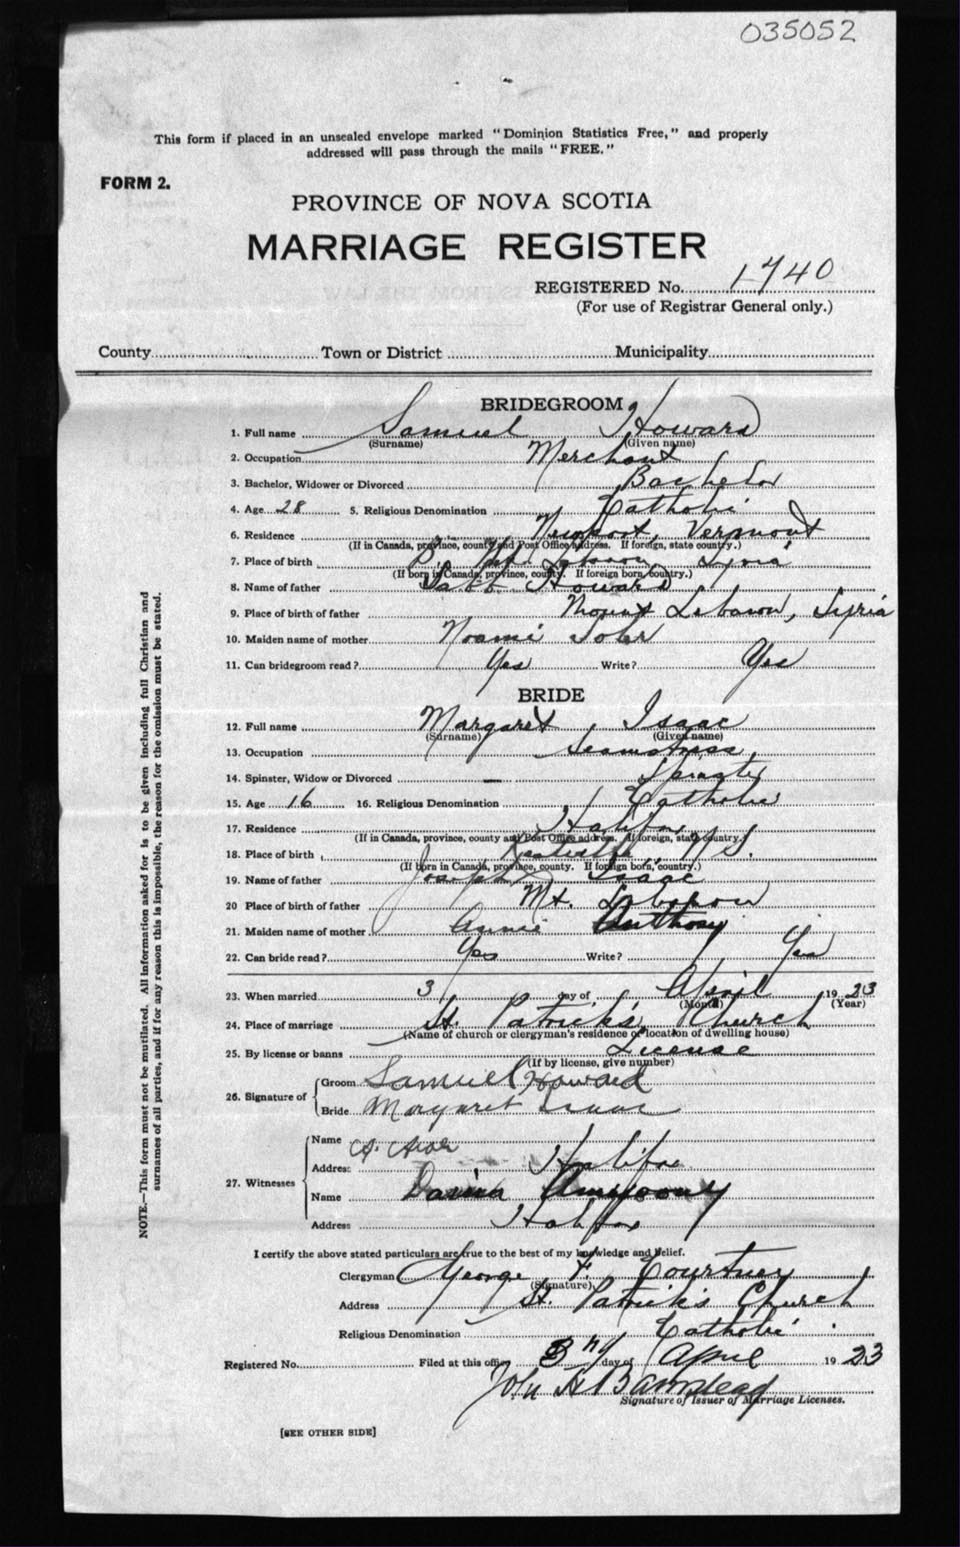 035052
This form if placed in an unsealed envelope marked "Dominion Statistics Free," and properly
addressed will pass through the mails "FREE."
FORM 2.
PROVINCE OF NOVA SCOTIA
MARRIAGE REGISTER
REGISTERED No. 1740
(For use of Registrar General only.)
County Town or District Municipality
BRIDEGROOM
1. Full name Samuel Howard
(Surname) (Given name)
2. Occupation Merchant
3. Bachelor, Widower or Divorced Bachelor
4. Age 28 5. Religious Denomination Catholic
6. Residence Newport, Vermont
(If in Canada, province, county and Post Office address. If foreign, state country.)
7. Place of birth Syria
(If born in Canada, province, county. If foreign born, country.)
8. Name of father Howard
9. Place of birth of father Mount Lebanon, Syria
10. Maiden name of mother Noami
11. Can bridegroom read? Yes Write? Yes
BRIDE
12. Full name Margaret, Isaac
(Surname) (Given name)
13. Occupation Seamstress
14. Spinster, Widow or Divorced — Spinster
15. Age 16 16. Religious Denomination Catholic
17. Residence Halifax
(If in Canada, province, county and Post Office address. If foreign, state country.)
18. Place of birth N.S.
(If born in Canada, province, county. If foreign born, country.)
19. Name of father Joseph Isaac
20 Place of birth of father Mt. Lebanon
21. Maiden name of mother Annie Anthony
22. Can bride read? Yes Write? Yes
23. When married 3 day of April 1923
(Month) (Year)
24. Place of marriage St. Patrick's Church
(Name of church or clergyman's residence or location of dwelling house)
25. By license or banns License
(If by license, give number)
26. Signature of Groom Samuel Howard
Bride Margaret Isaac
27. Witnesses Name
Address Halifax
Name
Address Halifax
I certify the above stated particulars are true to the best of my knowledge and belief.
Clergyman George F. Courtney
(Signature)
Address St. Patrick's Church
Religious Denomination Catholic
Registered No. Filed at this office day of April 1923
John H Barnstead
Signature of Issuer of Marriage Licenses.
[SEE OTHER SIDE]
NOTE.—This form must not be mutilated. All information asked for is to be given including full Christian and
surnames of all parties, and if for any reason this is impossible, the reason for the omission must be stated.